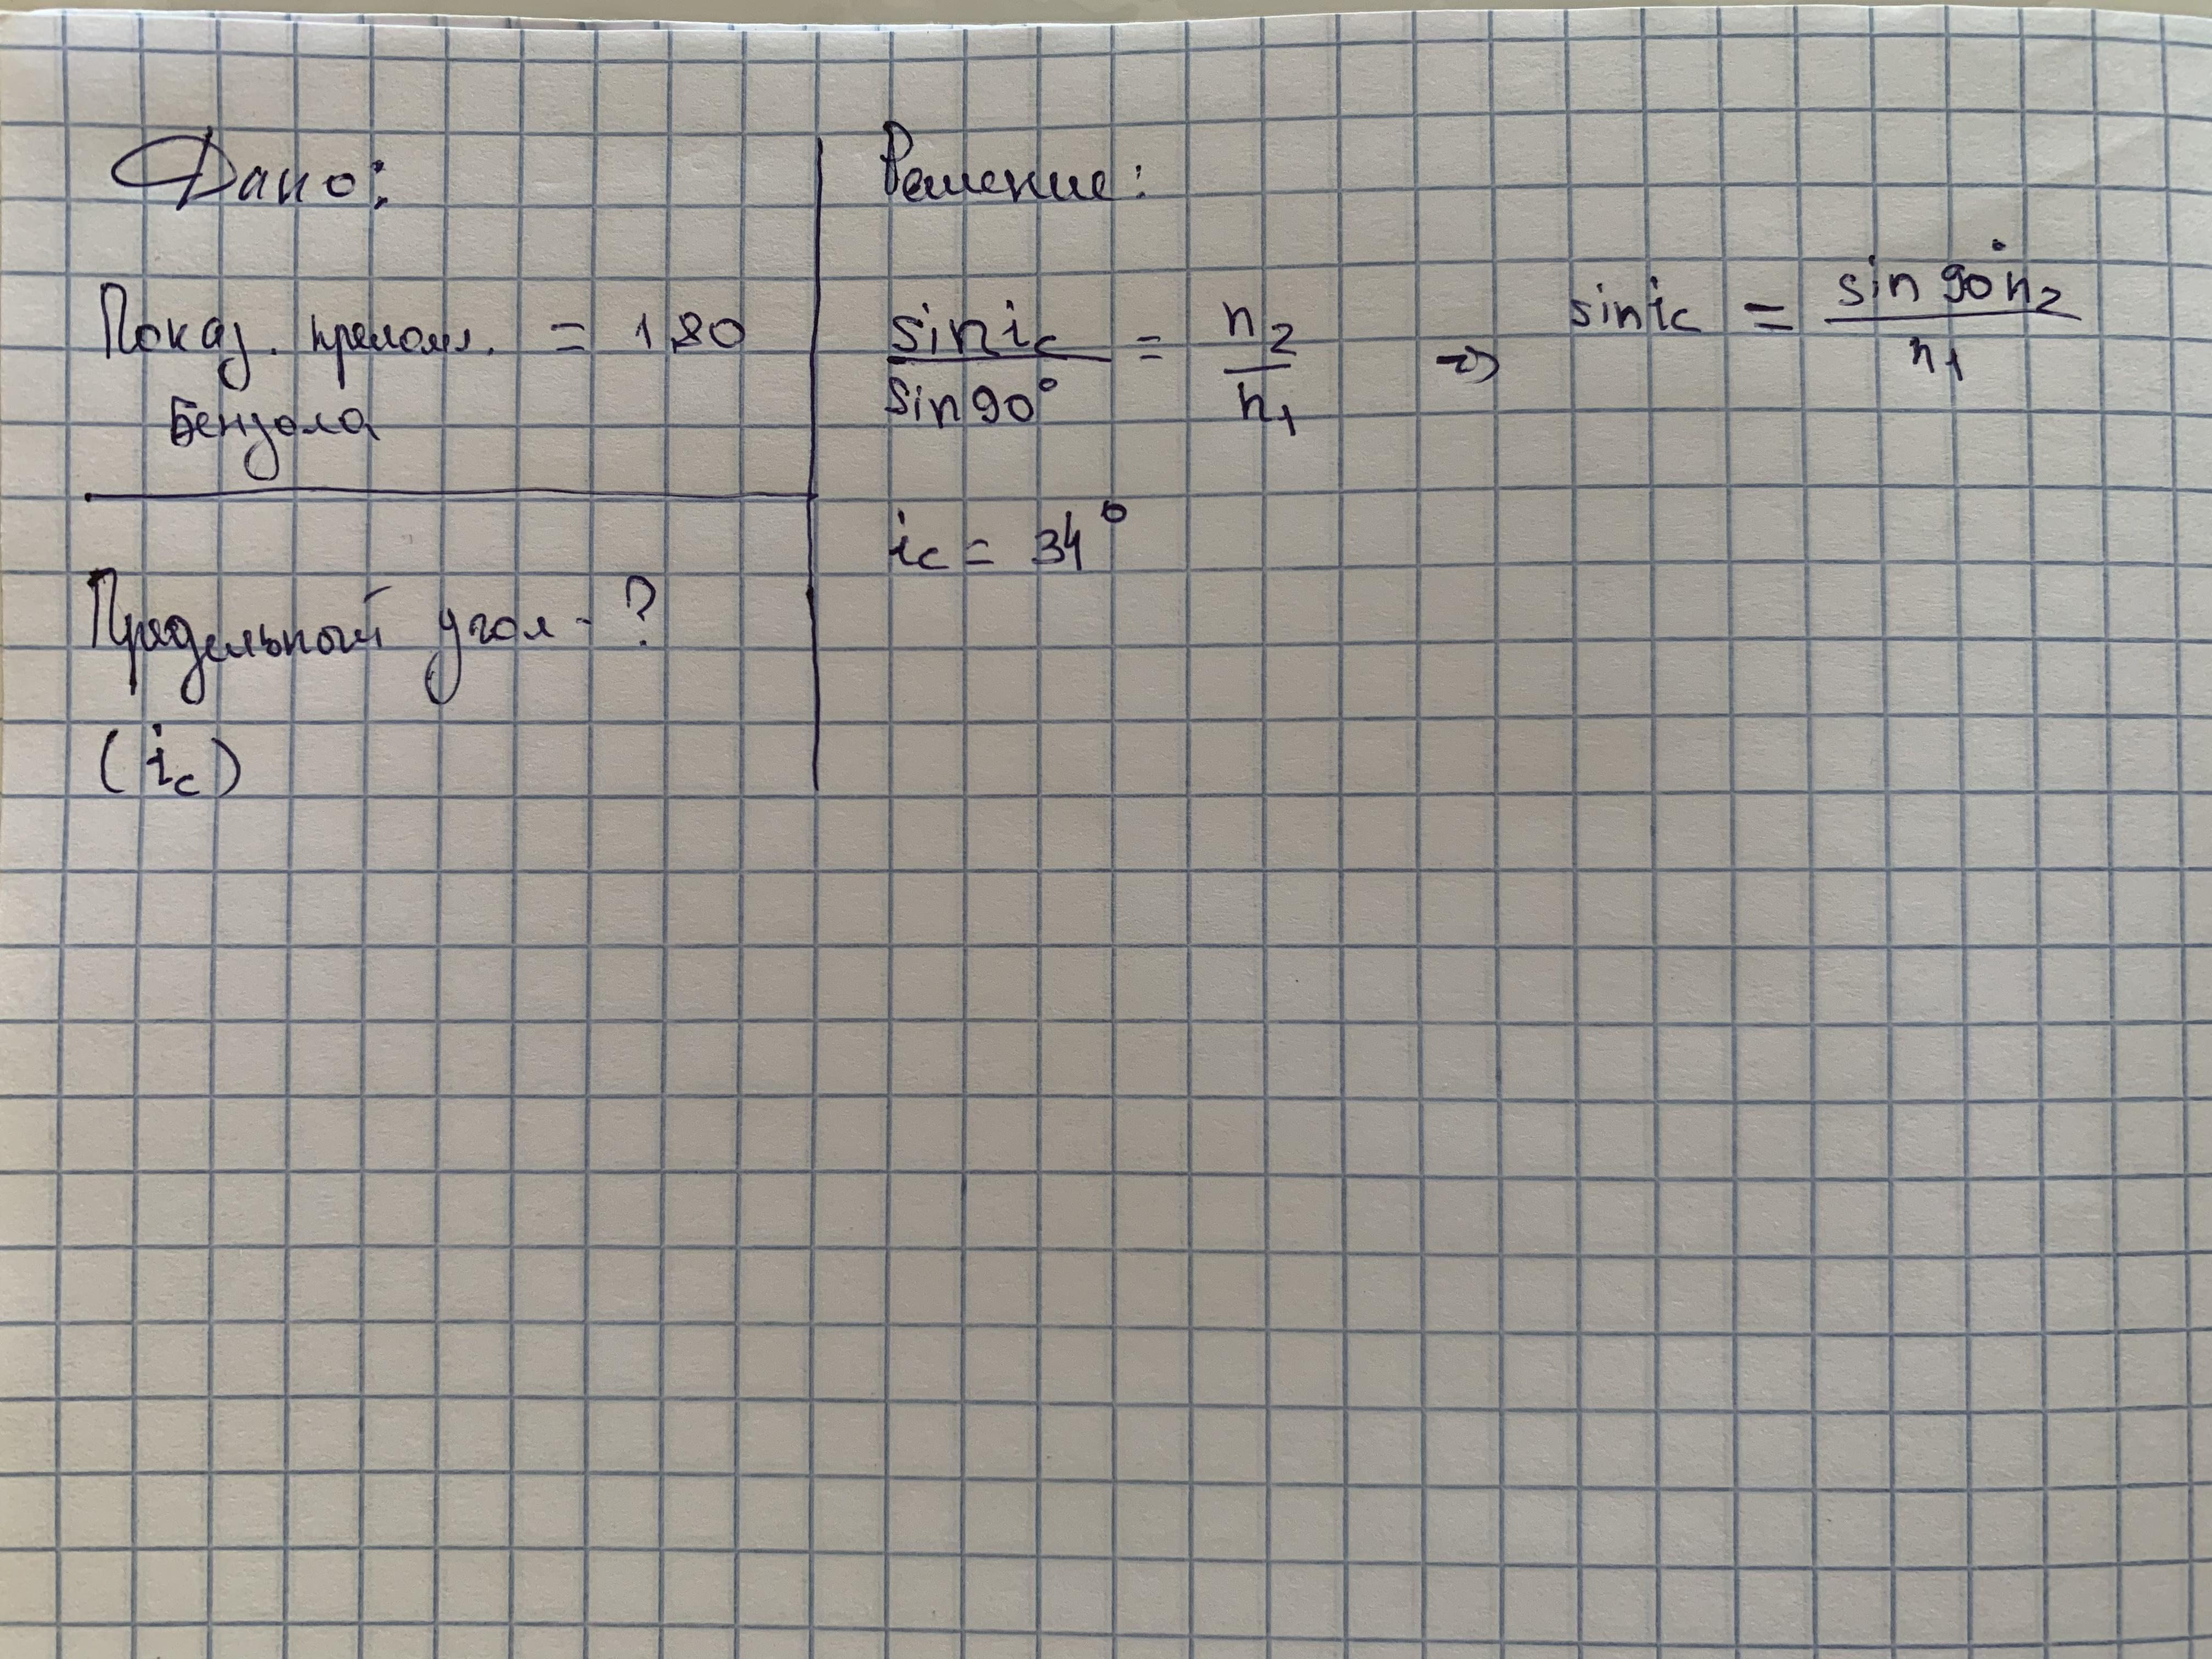 Дано:
Показ. прелом. = 1,80
Бензола
Предельный угол - ?
(ic)
Решение:
sin ic / sin 90° = n2 / n1 => sin ic = sin 90° n2 / n1
ic = 34°